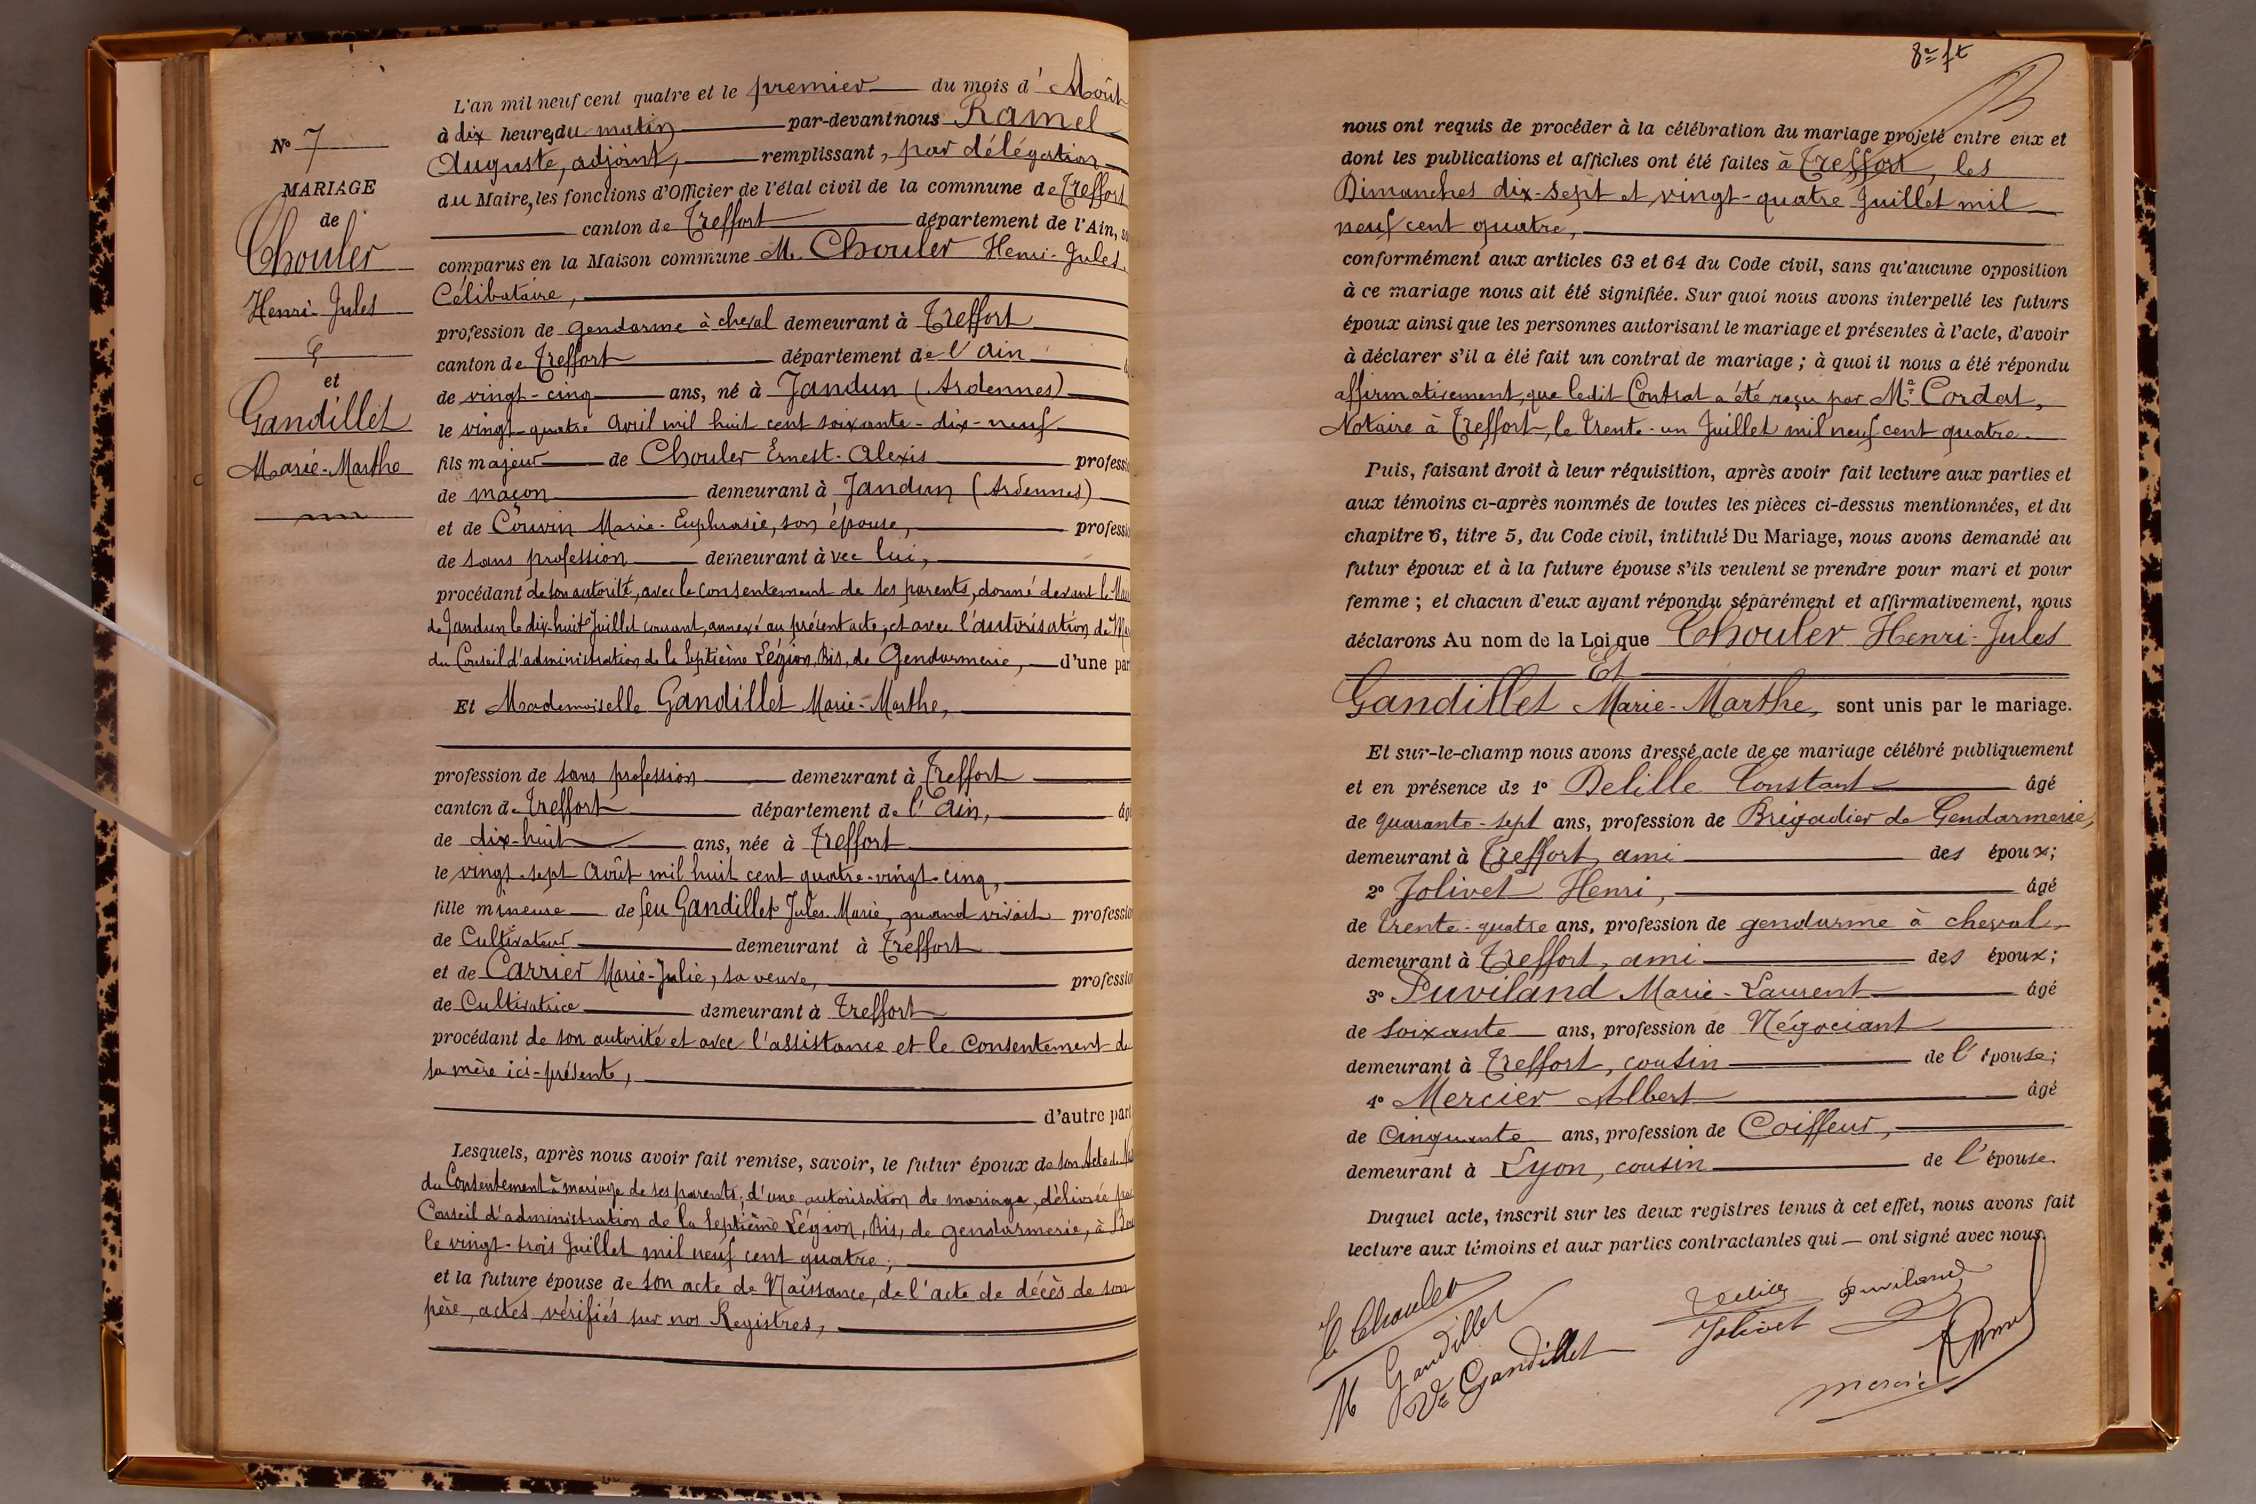 L'an mil neuf cent quatre et le premier du mois d'Août
à dix heures du matin par-devant nous Ramel
Auguste, adjoint, remplissant, par délégation
du Maire, les fonctions d'Officier de l'état civil de la commune de Treffort
canton de Treffort département de l'Ain,
comparus en la Maison commune M. Chouler Henri-Jules,
Célibataire,
profession de gendarme à cheval demeurant à Treffort
canton de Treffort département de l'Ain
de vingt-cinq ans, né à Jandun (Ardennes)
le vingt-quatre Avril mil huit cent soixante-dix-neuf
fils majeur de Chouler Ernest-Alexis professi
de maçon demeurant à Jandun (Ardennes)
et de Couvin Marie-Euphrasie, son épouse, professi
de sans profession demeurant àvec lui,
procédant de son autorité, avec le consentement de ses parents, donné devant le
de Jandun le dix-huit Juillet courant, annexé au présent acte, et avec l'autorisation de
du Conseil d'administration de la Septième Légion, Bis, de Gendarmerie, d'une par
Et Mademoiselle Gandillet Marie-Marthe,
profession de sans profession demeurant à Treffort
canton de Treffort département de l'Ain, âg
de dix-huit ans, née à Treffort
le vingt-sept Août mil huit cent quatre-vingt-cinq,
fille mineure de feu Gandillet Jules-Marie, quand vivait professio
de Cultivateur demeurant à Treffort
et de Carrier Marie-Julie, sa veuve, professio
de Cultivatrice demeurant à Treffort
procédant de son autorité et avec l'assistance et le Consentement de
sa mère ici-présente,
d'autre part
Lesquels, après nous avoir fait remise, savoir, le futur époux de son Acte de
du Consentement à mariage de ses parents, d'une autorisation de mariage, délivrée par
Conseil d'administration de la Septième Légion, Bis, de gendarmerie, à
le vingt-trois Juillet mil neuf cent quatre;
et la future épouse de son acte de Naissance, de l'acte de décès de son
père, actes vérifiés sur nos Registres,
No 7
MARIAGE
de
Chouler
Henri-Jules
et
Gandillet
Marie-Marthe
8e ft
nous ont requis de procéder à la célébration du mariage projeté entre eux et
dont les publications et affiches ont été faites à Treffort, les
Dimanches dix-sept et vingt-quatre Juillet mil
neuf cent quatre,
conformément aux articles 63 et 64 du Code civil, sans qu'aucune opposition
à ce mariage nous ait été signifiée. Sur quoi nous avons interpellé les futurs
époux ainsi que les personnes autorisant le mariage et présentes à l'acte, d'avoir
à déclarer s'il a été fait un contrat de mariage ; à quoi il nous a été répondu
affirmativement, que ledit Contrat a été reçu par Me Cordat,
Notaire à Treffort, le trente-un Juillet mil neuf cent quatre.
Puis, faisant droit à leur réquisition, après avoir fait lecture aux parties et
aux témoins ci-après nommés de toutes les pièces ci-dessus mentionnées, et du
chapitre 6, titre 5, du Code civil, intitulé Du Mariage, nous avons demandé au
futur époux et à la future épouse s'ils veulent se prendre pour mari et pour
femme ; et chacun d'eux ayant répondu séparément et affirmativement, nous
déclarons Au nom de la Loi que Chouler Henri-Jules
Et
Gandillet Marie-Marthe, sont unis par le mariage.
Et sur-le-champ nous avons dressé acte de ce mariage célébré publiquement
et en présence de 1° Delille Constant âgé
de quarante-sept ans, profession de Brigadier de Gendarmerie,
demeurant à Treffort, ami des époux;
2° Jolivet Henri, âgé
de trente-quatre ans, profession de gendarme à cheval,
demeurant à Treffort, ami des époux;
3° Puviland Marie-Laurent âgé
de soixante ans, profession de Négociant
demeurant à Treffort, cousin de l'épouse;
4° Mercier Albert âgé
de Cinquante ans, profession de Coiffeur,
demeurant à Lyon, cousin de l'épouse.
Duquel acte, inscrit sur les deux registres tenus à cet effet, nous avons fait
lecture aux témoins et aux parties contractantes qui ont signé avec nous.
h Chouler
M Gandillet
Ve Gandillet
Delille
Jolivet
Puviland
Ramel
Mercier